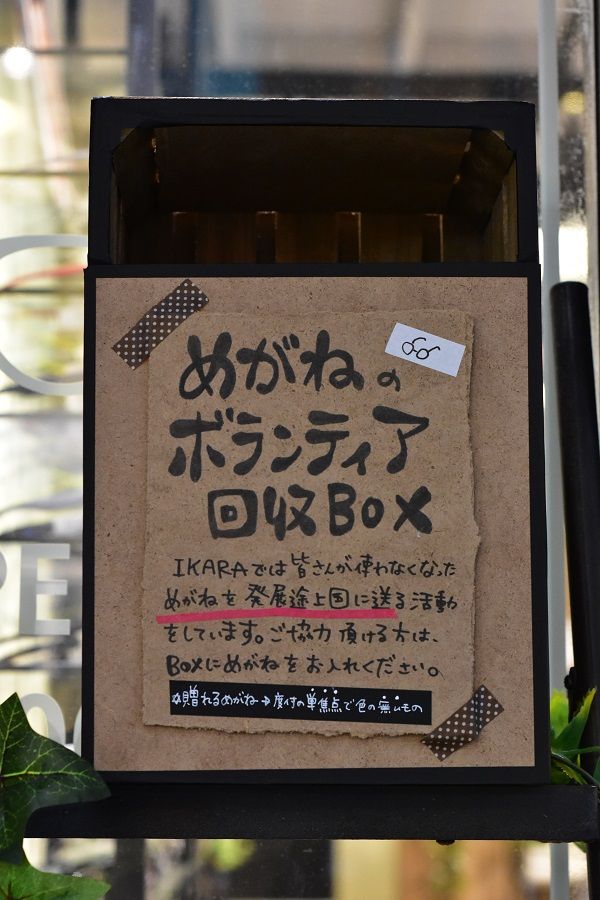 めがねの
ボランティア
回収BOX
IKARAでは皆さんが使わなくなった
めがねを発展途上国に送る活動
をしています。ご協力頂ける方は、
BOXにめがねをお入れください。
☆贈れるめがね→度付の単焦点で色の無いもの